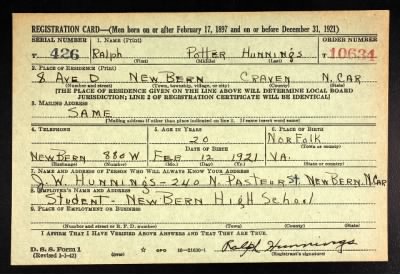 REGISTRATION CARD—(Men born on or after February 17, 1897 and on or before December 31, 1921)
SERIAL NUMBER 1. NAME (Print) ORDER NUMBER
T 426 Ralph Potter Hunnings T 10634
(First) (Middle) (Last)
2. PLACE OF RESIDENCE (Print)
8 Ave D New Bern Craven N. Car
(Number and street) (Town, township, village, or city) (County) (State)
[THE PLACE OF RESIDENCE GIVEN ON THE LINE ABOVE WILL DETERMINE LOCAL BOARD
JURISDICTION; LINE 2 OF REGISTRATION CERTIFICATE WILL BE IDENTICAL]
3. MAILING ADDRESS
SAME
[Mailing address if other than place indicated on line 2. If same insert word same]
4. TELEPHONE 5. AGE IN YEARS 6. PLACE OF BIRTH
20 Norfolk
DATE OF BIRTH (Town or county)
New Bern 880W Feb 12 1921 VA.
(Exchange) (Number) (Mo.) (Day) (Yr.) (State or country)
7. NAME AND ADDRESS OF PERSON WHO WILL ALWAYS KNOW YOUR ADDRESS
J. W. Hunnings - 240 N. Pasteur St. New Bern, N. Car
8. EMPLOYER'S NAME AND ADDRESS
Student - New Bern High School
9. PLACE OF EMPLOYMENT OR BUSINESS
(Number and street or R. F. D. number) (Town) (County) (State)
I AFFIRM THAT I HAVE VERIFIED ABOVE ANSWERS AND THAT THEY ARE TRUE.
D. S. S. Form 1 GPO 16—21630-1 Ralph Hunnings
(Revised 1-1-42) (Registrant's signature)